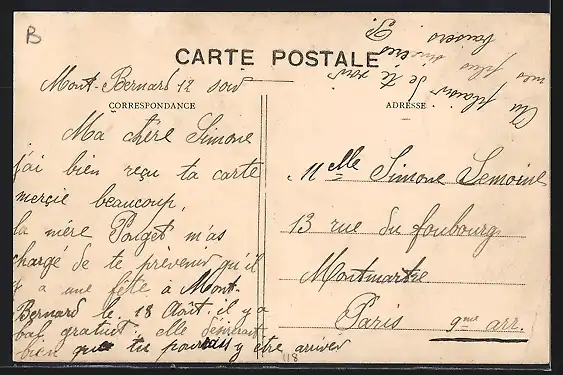 B
CARTE POSTALE
Mont-Bernard 12 soir
CORRESPONDANCE
Ma chère Simone
j'ai bien reçu ta carte
merçie beaucoup,
la mére Pouget m'as
chargé de te prévenir qu'il
y a une fête à Mont-
Bernard le 18 Août, il y a
bal gratuit, elle désirerait
bien que tu pourrais y être arriver
Au plaisir de te voir
mes plus sincères
baisers
S.
ADRESSE
Mlle Simone Lemoine
13 rue du foubourg
Montmartre
Paris 9me arr.
118